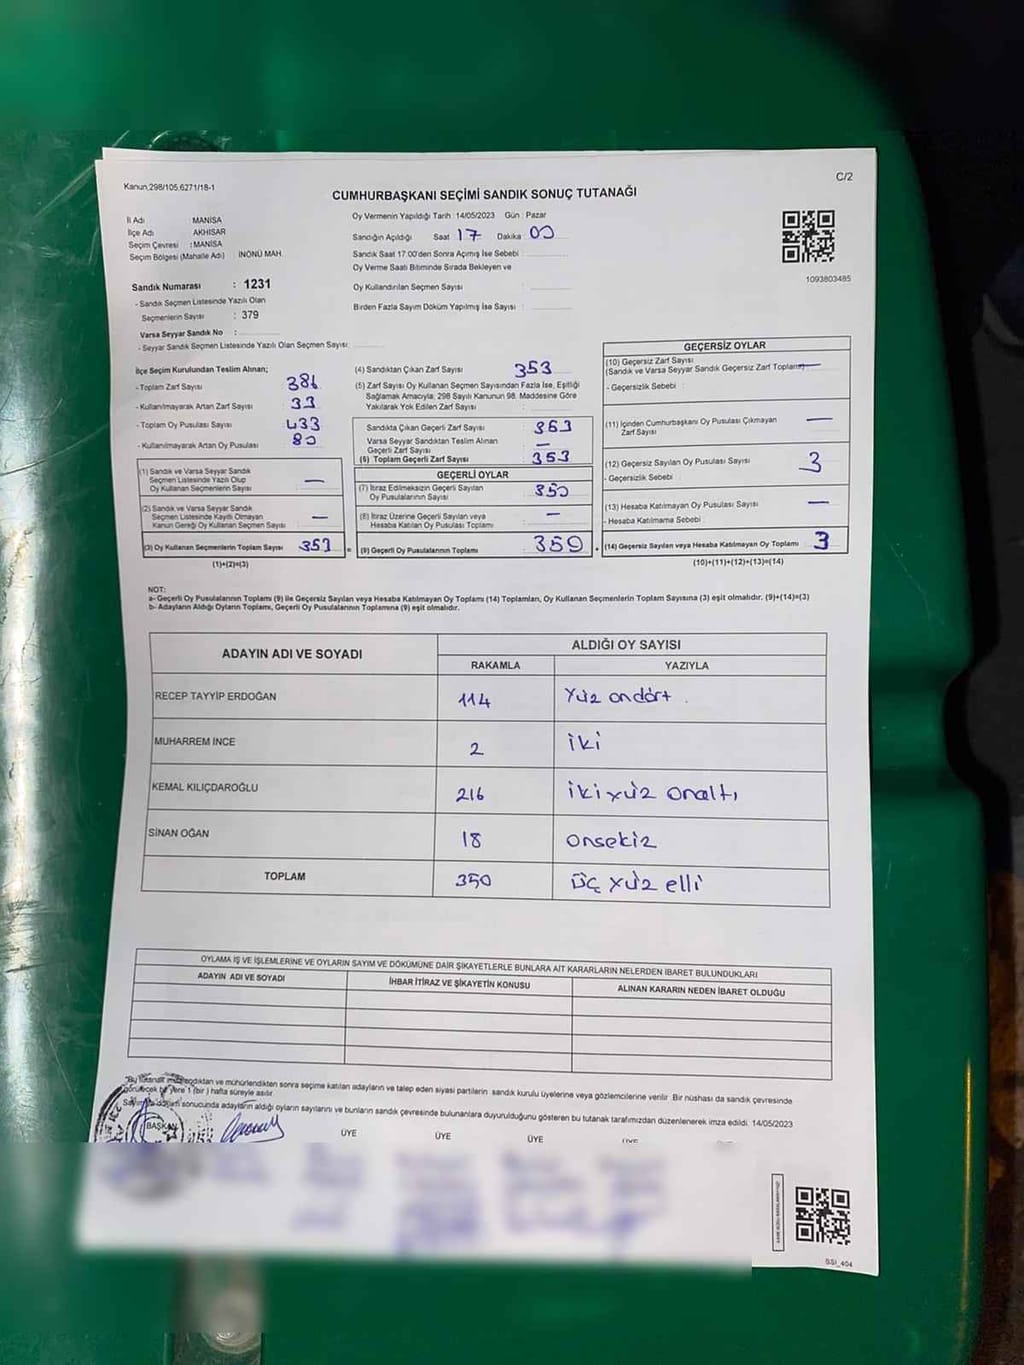 Kanun,298/105.6271/18-1
C/2
CUMHURBAŞKANI SEÇİMİ SANDIK SONUÇ TUTANAĞI
İl Adı MANİSA
İlçe Adı AKHİSAR
Seçim Çevresi : MANİSA
Seçim Bölgesi (Mahalle Adı) İNÖNÜ MAH.
Sandık Numarası : 1231
- Sandık Seçmen Listesinde Yazılı Olan
Seçmenlerin Sayısı : 379
Varsa Seyyar Sandık No :
- Seyyar Sandık Seçmen Listesinde Yazılı Olan Seçmen Sayısı:
Oy Vermenin Yapıldığı Tarih : 14/05/2023 Gün : Pazar
Sandığın Açıldığı Saat 17 Dakika 00
Sandık Saat 17:00'den Sonra Açımış İse Sebebi :
Oy Verme Saati Bitiminde Sırada Bekleyen ve
Oy Kullandırılan Seçmen Sayısı :
Birden Fazla Sayım Döküm Yapılmış İse Sayısı :
1093803485
İlçe Seçim Kurulundan Teslim Alınan;
- Toplam Zarf Sayısı 386
- Kullanılmayarak Artan Zarf Sayısı 33
- Toplam Oy Pusulası Sayısı 433
- Kullanılmayarak Artan Oy Pusulası 80
(1) Sandık ve Varsa Seyyar Sandık
Seçmen Listesinde Yazılı Olup
Oy Kullanan Seçmenlerin Sayısı —
(2) Sandık ve Varsa Seyyar Sandık
Seçmen Listesinde Kayıtlı Olmayan
Kanun Gereği Oy Kullanan Seçmen Sayısı —
(3) Oy Kullanan Seçmenlerin Toplam Sayısı 353
(1)+(2)=(3)
(4) Sandıktan Çıkan Zarf Sayısı 353
(5) Zarf Sayısı Oy Kullanan Seçmen Sayısından Fazla İse, Eşitliği
Sağlamak Amacıyla; 298 Sayılı Kanunun 98. Maddesine Göre
Yakılarak Yok Edilen Zarf Sayısı :
Sandıkta Çıkan Geçerli Zarf Sayısı 353
Varsa Seyyar Sandıktan Teslim Alınan
Geçerli Zarf Sayısı —
(6) Toplam Geçerli Zarf Sayısı 353
GEÇERLİ OYLAR
(7) İtiraz Edilmeksizin Geçerli Sayılan
Oy Pusulalarının Sayısı 350
(8) İtiraz Üzerine Geçerli Sayılan veya
Hesaba Katılan Oy Pusulası Toplamı —
(9) Geçerli Oy Pusulalarının Toplamı 350
GEÇERSİZ OYLAR
(10) Geçersiz Zarf Sayısı
(Sandık ve Varsa Seyyar Sandık Geçersiz Zarf Toplamı) —
- Geçersizlik Sebebi :
(11) İçinden Cumhurbaşkanı Oy Pusulası Çıkmayan
Zarf Sayısı —
(12) Geçersiz Sayılan Oy Pusulası Sayısı 3
- Geçersizlik Sebebi :
(13) Hesaba Katılmayan Oy Pusulası Sayısı —
- Hesaba Katılmama Sebebi :
(14) Geçersiz Sayılan veya Hesaba Katılmayan Oy Toplamı 3
(10)+(11)+(12)+(13)=(14)
NOT:
a- Geçerli Oy Pusulalarının Toplamı (9) ile Geçersiz Sayılan veya Hesaba Katılmayan Oy Toplamı (14) Toplamları, Oy Kullanan Seçmenlerin Toplam Sayısına (3) eşit olmalıdır. (9)+(14)=(3)
b- Adayların Aldığı Oyların Toplamı, Geçerli Oy Pusulalarının Toplamına (9) eşit olmalıdır.
ADAYIN ADI VE SOYADI ALDIĞI OY SAYISI
RAKAMLA YAZIYLA
RECEP TAYYİP ERDOĞAN 114 Yüz ondört
MUHARREM İNCE 2 iki
KEMAL KILIÇDAROĞLU 216 iki yüz onaltı
SİNAN OĞAN 18 onsekiz
TOPLAM 350 üç yüz elli
OYLAMA İŞ VE İŞLEMLERİNE VE OYLARIN SAYIM VE DÖKÜMÜNE DAİR ŞİKAYETLERLE BUNLARA AİT KARARLARIN NELERDEN İBARET BULUNDUKLARI
ADAYIN ADI VE SOYADI İHBAR İTİRAZ VE ŞİKAYETİN KONUSU ALINAN KARARIN NEDEN İBARET OLDUĞU
"Bu tutanak imzalandıktan ve mühürlendikten sonra seçime katılan adayların ve talep eden siyasi partilerin sandık kurulu üyelerine veya gözlemcilerine verilir. Bir nüshası da sandık çevresinde
görülecek bir yere 1 (bir) hafta süreyle asılır.
sonucunda adayların aldığı oyların sayılarını ve bunların sandık çevresinde bulunanlara duyurulduğunu gösteren bu tutanak tarafımızdan düzenlenerek imza edildi. 14/05/2023
BAŞKAN ÜYE ÜYE ÜYE ÜYE
SSI_404